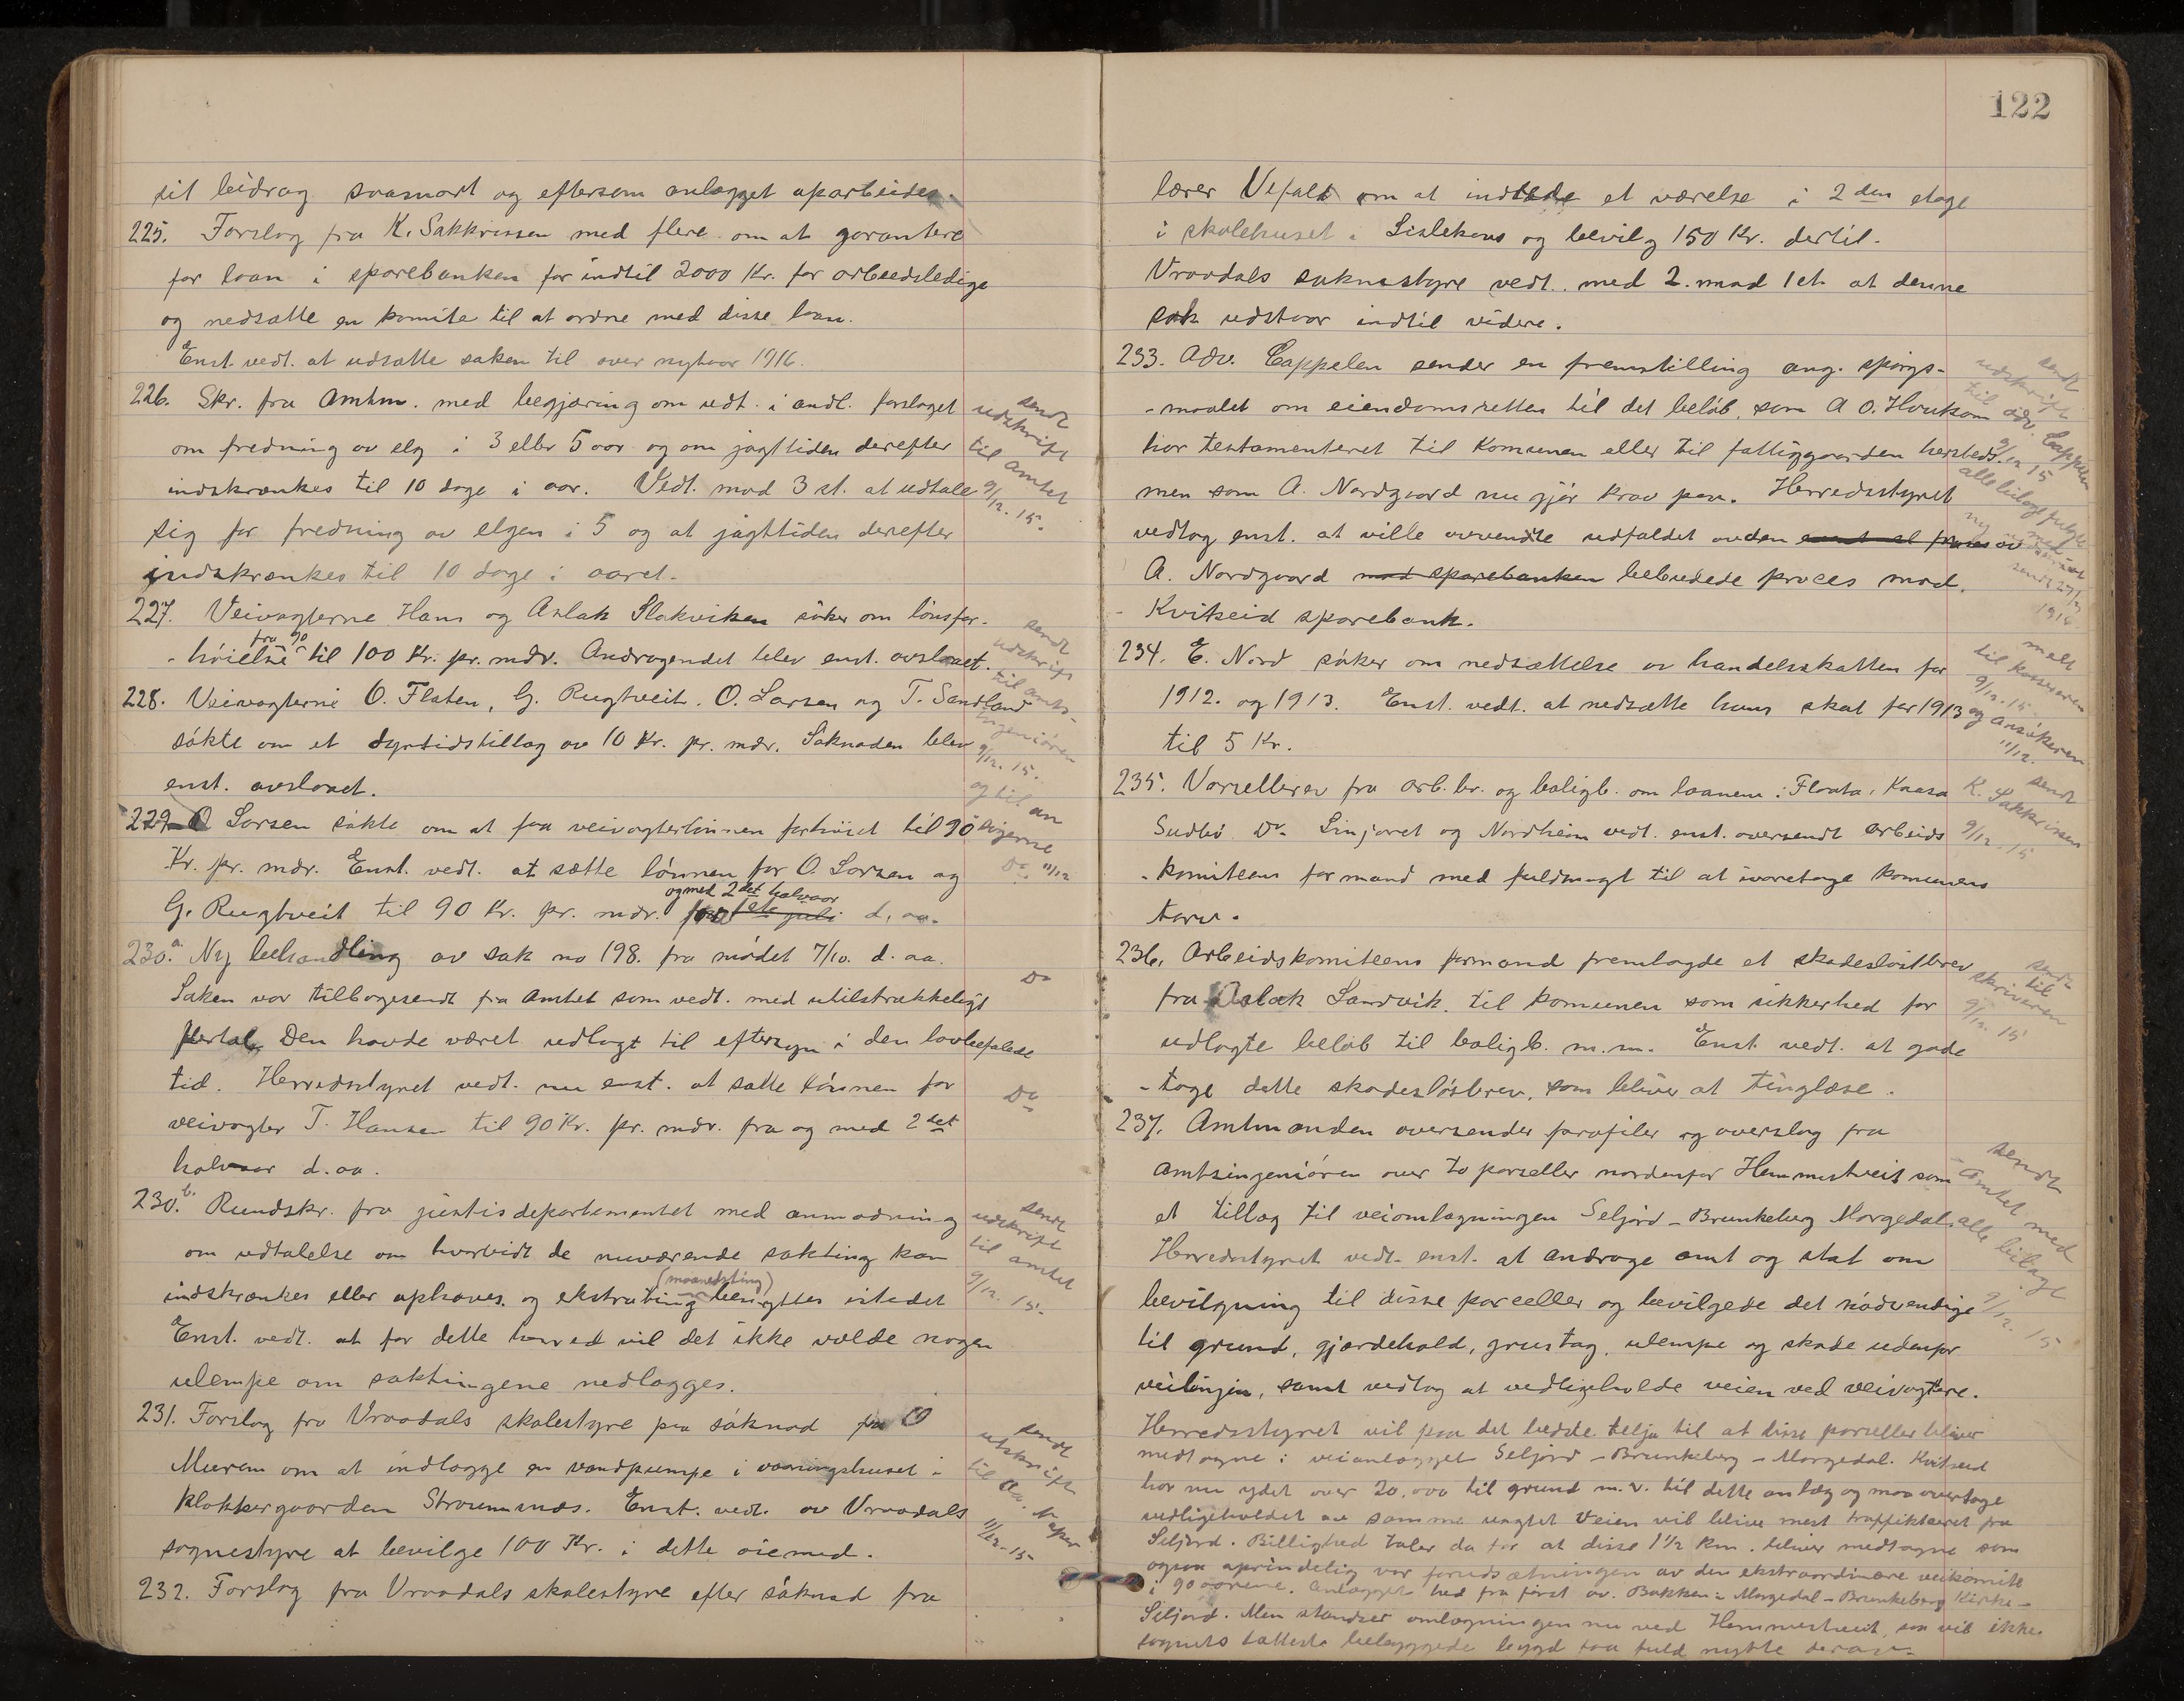 sit bidrag svasnart og eftersom anlægget oparbeides.
225. Forslag fra K. Sakkrissen med flere om at garantere
for laan i sparebanken for indtil 2000 Kr. for arbeidsledige
og nedsætte en komite til at ordne med disse laan.
Enst. vedt. at udsætte saken til over nytaar 1916.
226. Skr. fra Amtm. med begjæring om vedt. i andl. forslaget
om fredning av elg i 3 eller 5 aar og om jagttiden derefter
indskrænkes til 10 dage i aar. Vedt. mod 3 st. at udtale
sig for fredning av elgen i 5 og at jagttiden derefter
indskrænkes til 10 dage i aaret.
sendt
udskrift
til amtet
9/12. 15.
227. Veivogterne Hans og Aslak Slakviken søker om lønsfor-
fra 90
-høielse til 100 Kr. pr. mdr. Andragendet blev enst. avslaaet.
228. Veivogterne O. Flaten, G. Rugtveit. O. Larsen og T. Sandland
søkte om et dyrtidstillæg av 10 Kr. pr. mdr. Søknaden blev
enst. avslaaet.
sendt
udskrift
til amts-
ingeniøren
9/12. 15.
og til an
søgerne
11/12
229 O Larsen søkte om at faa veivogterlønnen forhøiet til 90
Kr. pr. mdr. Enst. vedt. at sætte lønnen for O. Larsen og
og med 2det halvaar
G. Rugtveit til 90 Kr. pr. mdr. fra 1ste juli d. aa.
Do
230.a Ny behandling av sak no 198. fra mødet 7/10. d. aa.
Saken var tilbagesendt fra Amtet som vedt. med utilstrækkeligt
flertal. Den havde været udlagt til eftersyn i den lovbefalede
tid. Herredsstyret vedt. nu enst. at sætte lønnen for
veivogter T. Hansen til 90 Kr. pr. mdr. fra og med 2det
halvaar d. aa.
Do
Do
230.b. Rundskr. fra justisdepartementet med anmodning
om udtalelse om hvorvidt de nuværende sakting kan
(maanedsting)
indskrænkes eller ophæves. og ekstrating benyttes istedet
Enst. vedt. at for dette herred vil det ikke volde nogen
ulempe om saktingene nedlægges.
sendt
udskrift
til amtet
9/12. 15.
231. Forslag fra Vraadals skolestyre paa søknad fra O
Murem om at indlægge en vandpumpe i vaaningshuset i
klokkergaarden Straumsnæs. Enst. vedt. av Vraadals
sognestyre at bevilge 100 Kr. i dette øiemed.
sendt
utskrift
til Aa.
11/12. 15
232. Forslag fra Vraadals skolestyre efter søknad fra
122
lærer Vefald om at indrede et værelse i 2den etage
i skolehuset i Lislekaas og bevilg 150 Kr. dertil.
Vraadals soknestyre vedt. med 2. mod 1 st. at denne
sak udstaar indtil videre.
233. Adv. Cappelen sender en fremstilling ang. spørgs-
-maalet om eiendomsretten til det beløb, som A O. Haukom
har testamenteret til Komunen eller til fattiggaarden hersteds.
men som A. Nordgaard nu gjør krav paa. Herredsstyret
vedtog enst. at ville avvendte udfaldet avden av
A. Nordgaard mod sparebanken bebudede proces mod.
Kviteseid sparebank.
sendt
udskrift
til adv. Cappelen
9/12 15
alle bilage fulgte
sendt 27/3
1916.
234. E. Nord søker om nedsættelse av handelsskatten for
1912. og 1913. Enst. vedt. at nedsætte hans skat for 1913
til 5 Kr.
melt
til kassereren
9/12. 15.
og ansøkeren
11/12.
235. Varselbrev fra arb.br. og boligb. om laanene: Flaata, Kaasa
Sudbø Do Linjoret og Nordheim vedt. enst. oversendt arbeids
-komiteens formand med fuldmagt til at ivaretage komunens
tarv.
sendt
K. Sakkrissen
9/12. 15
236. Arbeidskomiteens formand fremlagde et skadesløstbrev
fra Aslak Sandvik. til komunen som sikkerhed for
udlagte beløb til boligb. m.m. Enst. vedt. at gode
-tage dette skadesløsbrev, som bliver at tinglæse.
sendt
til
skriveren
9/12. 15
237. Amtmanden oversender profiler og overslag fra
amtsingeniøren over to parseller nordenfor Hemmestveit som
et tillæg til veiomlægningen Seljord - Brunkeberg Morgedal.
Herredsstyret vedt. enst. at andrage amt og stat om
bevilgning til disse parceller og bevilgede det nødvendige
til grund, gjærdehold, grustag, ulempe og skade udenfor
veilinjen, samt vedtog at vedligeholde veien ved veivogtere.
sendt
Amtet med
alle bilage
9/12. 15
Herredsstyret vil paa det bedste telja til at disse parseller bliver
medtagne i veianlægget Seljord - Brunkeberg - Morgedal. Kviteseid
har nu ydet over 20.000 til grund m.v. til dette anlæg og maa overtage
vedligeholdet av samme uagtet Veien vil blive mest traffikteret fra
Seljord. Billighed taler da for at disse 1 1/2 km. bliver medtagne som
ogsaa oprindelig var forudsætningen av den ekstraordinære veikomite
i 90 aarene. Anlægget hed fra først av. Bakken i Morgedal - Brunkeberg Kirke -
Seljord. Men standser omlægningen nu ved Hemmestveit, saa vil ikke
sognets tættest bebyggede bygd faa fuld nytte derav.